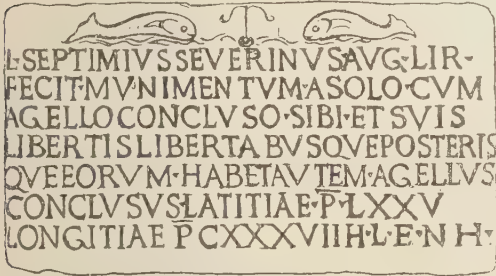 L·SEPTIMIVS SEVERINVS AVG·LIR·
FECIT·MVNIMENTVM·A SOLO·CVM
AGELLO CONCLVSO·SIBI·ET SVIS
LIBERTIS LIBERTABVSQVE POSTERIS
QVE EORVM·HABET AVTEM·AGELLVS
CONCLVSVS·LATITIAE·P·LXXV
LONGITIAE P CXXXVII H·L·E·N H·